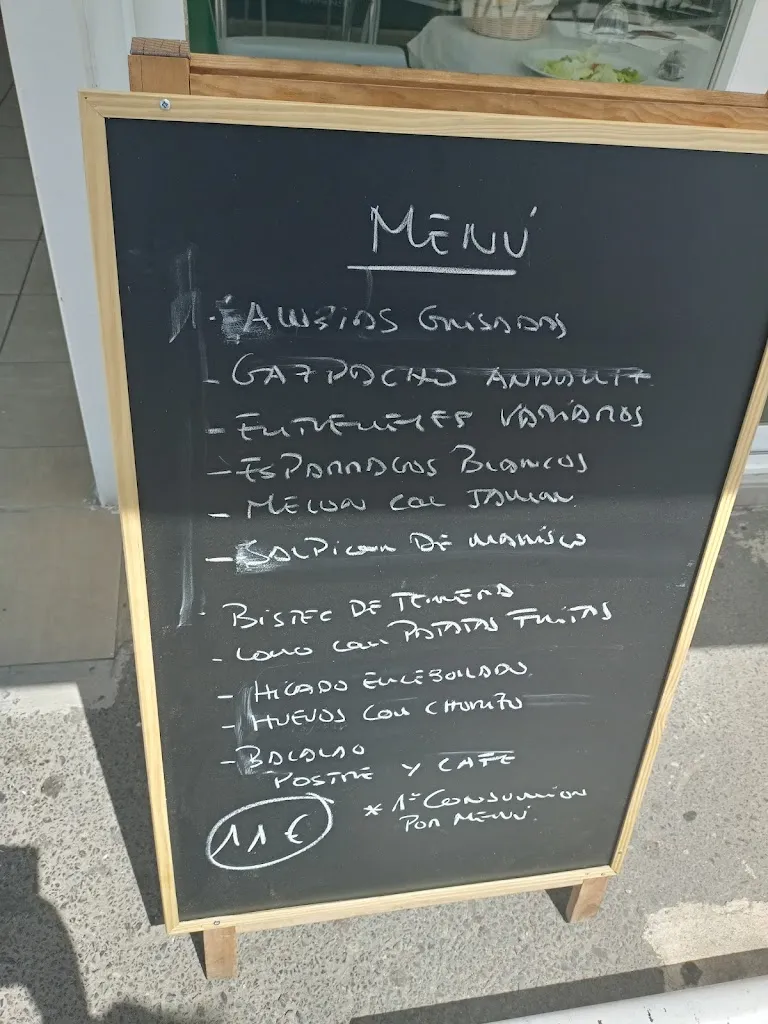 MENÚ
- ALUBIAS GUISADAS
- GAZPACHO ANDALUZ
- ENTREMESES VARIADOS
- ESPARRAGOS BLANCOS
- MELON CON JAMON
- SALPICON DE MARISCO
- BISTEC DE TERNERA
- LOMO CON PATATAS FRITAS
- HIGADO ENCEBOLLADO
- HUEVOS CON CHORIZO
- BACALAO
POSTRE Y CAFE
11 €
* 1ª CONSUMICION
POR MENÚ.